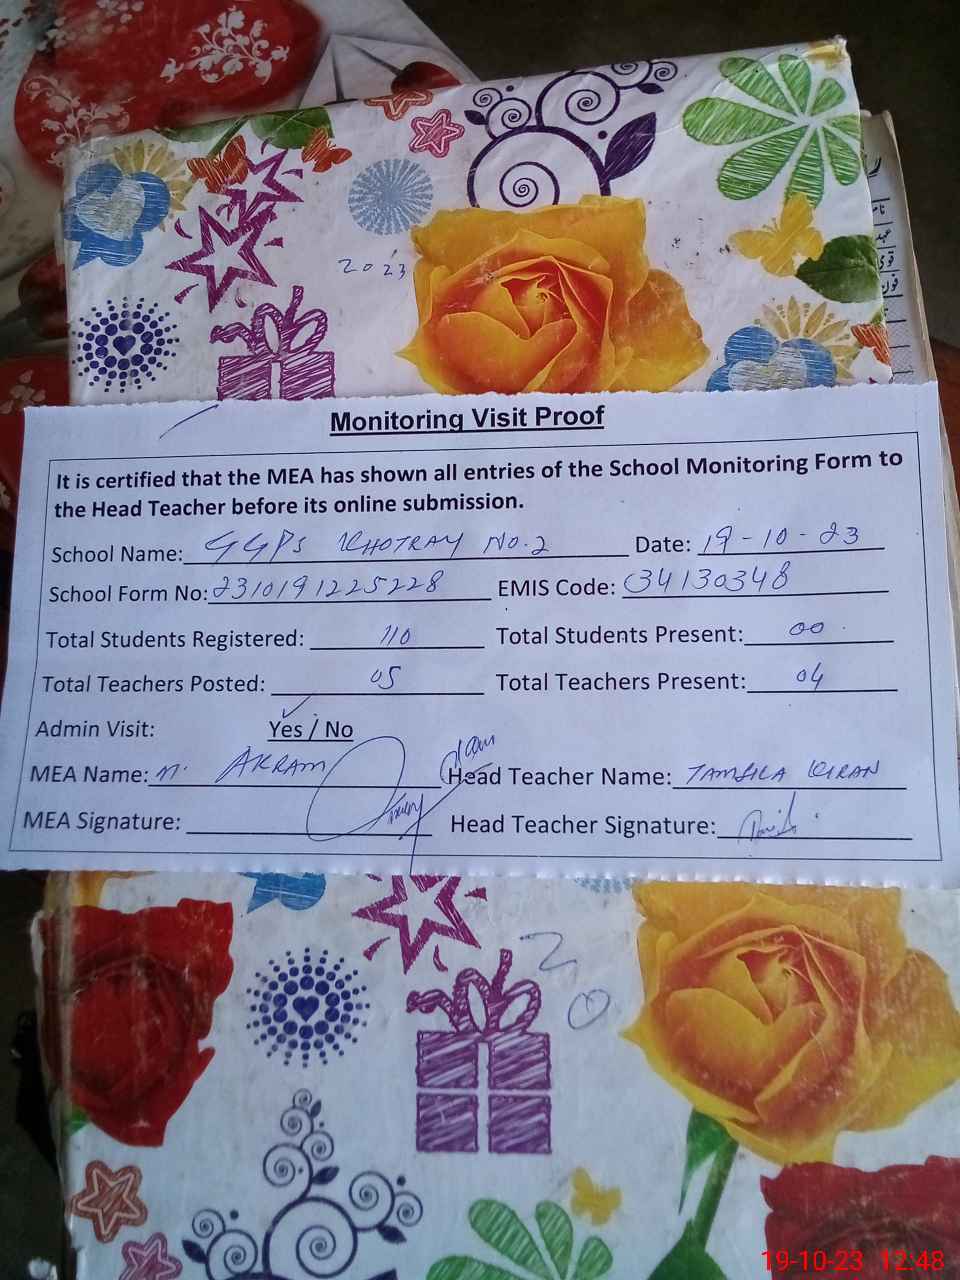 2023
Monitoring Visit Proof
It is certified that the MEA has shown all entries of the School Monitoring Form to
the Head Teacher before its online submission.
School Name: GGPS KHOTRAY NO.2 Date: 19-10-23
School Form No: 2310191225228 EMIS Code: 34130348
Total Students Registered: 110 Total Students Present: 00
Total Teachers Posted: 05 Total Teachers Present: 04
Admin Visit: Yes / No
MEA Name: M. AKRAM Head Teacher Name: KIRAN
MEA Signature: Head Teacher Signature:
20
19-10-23 12:48